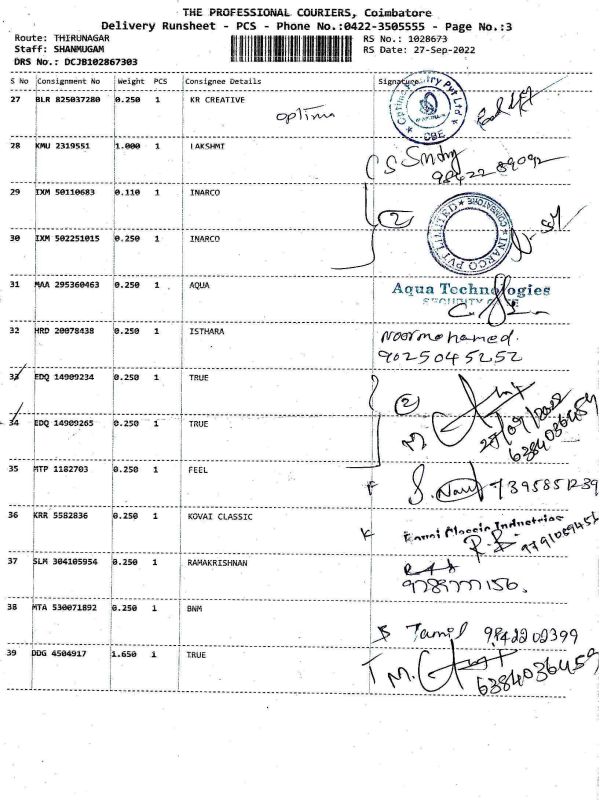 THE PROFESSIONAL COURIERS, Coimbatore
Delivery Runsheet - PCS - Phone No.:0422-3505555 - Page No.:3
Route: THIRUNAGAR RS No.: 1028673
Staff: SHANMUGAM RS Date: 27-Sep-2022
DRS No.: DCJB102867303
S No Consignment No Weight PCS Consignee Details Signature
27 BLR 825037280 0.250 1 KR CREATIVE
optima
CBE
28 KMU 2319551 1.000 1 LAKSHMI
29 IXM 50110683 0.110 1 INARCO
2
INARCO PVT LIMITED COIMBATORE
30 IXM 502251015 0.250 1 INARCO
31 MAA 295360463 0.250 1 AQUA
Aqua Technologies
32 HRD 20078438 0.250 1 ISTHARA
Noormohamed.
9025045252
33 EDQ 14909234 0.250 1 TRUE
2
27/09/2022
6384036459
34 EDQ 14909265 0.250 1 TRUE
35 MTP 1182703 0.250 1 FEEL
F 7395851239
36 KRR 5582836 0.250 1 KOVAI CLASSIC
K
37 SLM 304105954 0.250 1 RAMAKRISHNAN
9789777156.
38 MTA 530071892 0.250 1 BNM
B Tamil 9842202399
39 DDG 4504917 1.650 1 TRUE
T M. 6384036459